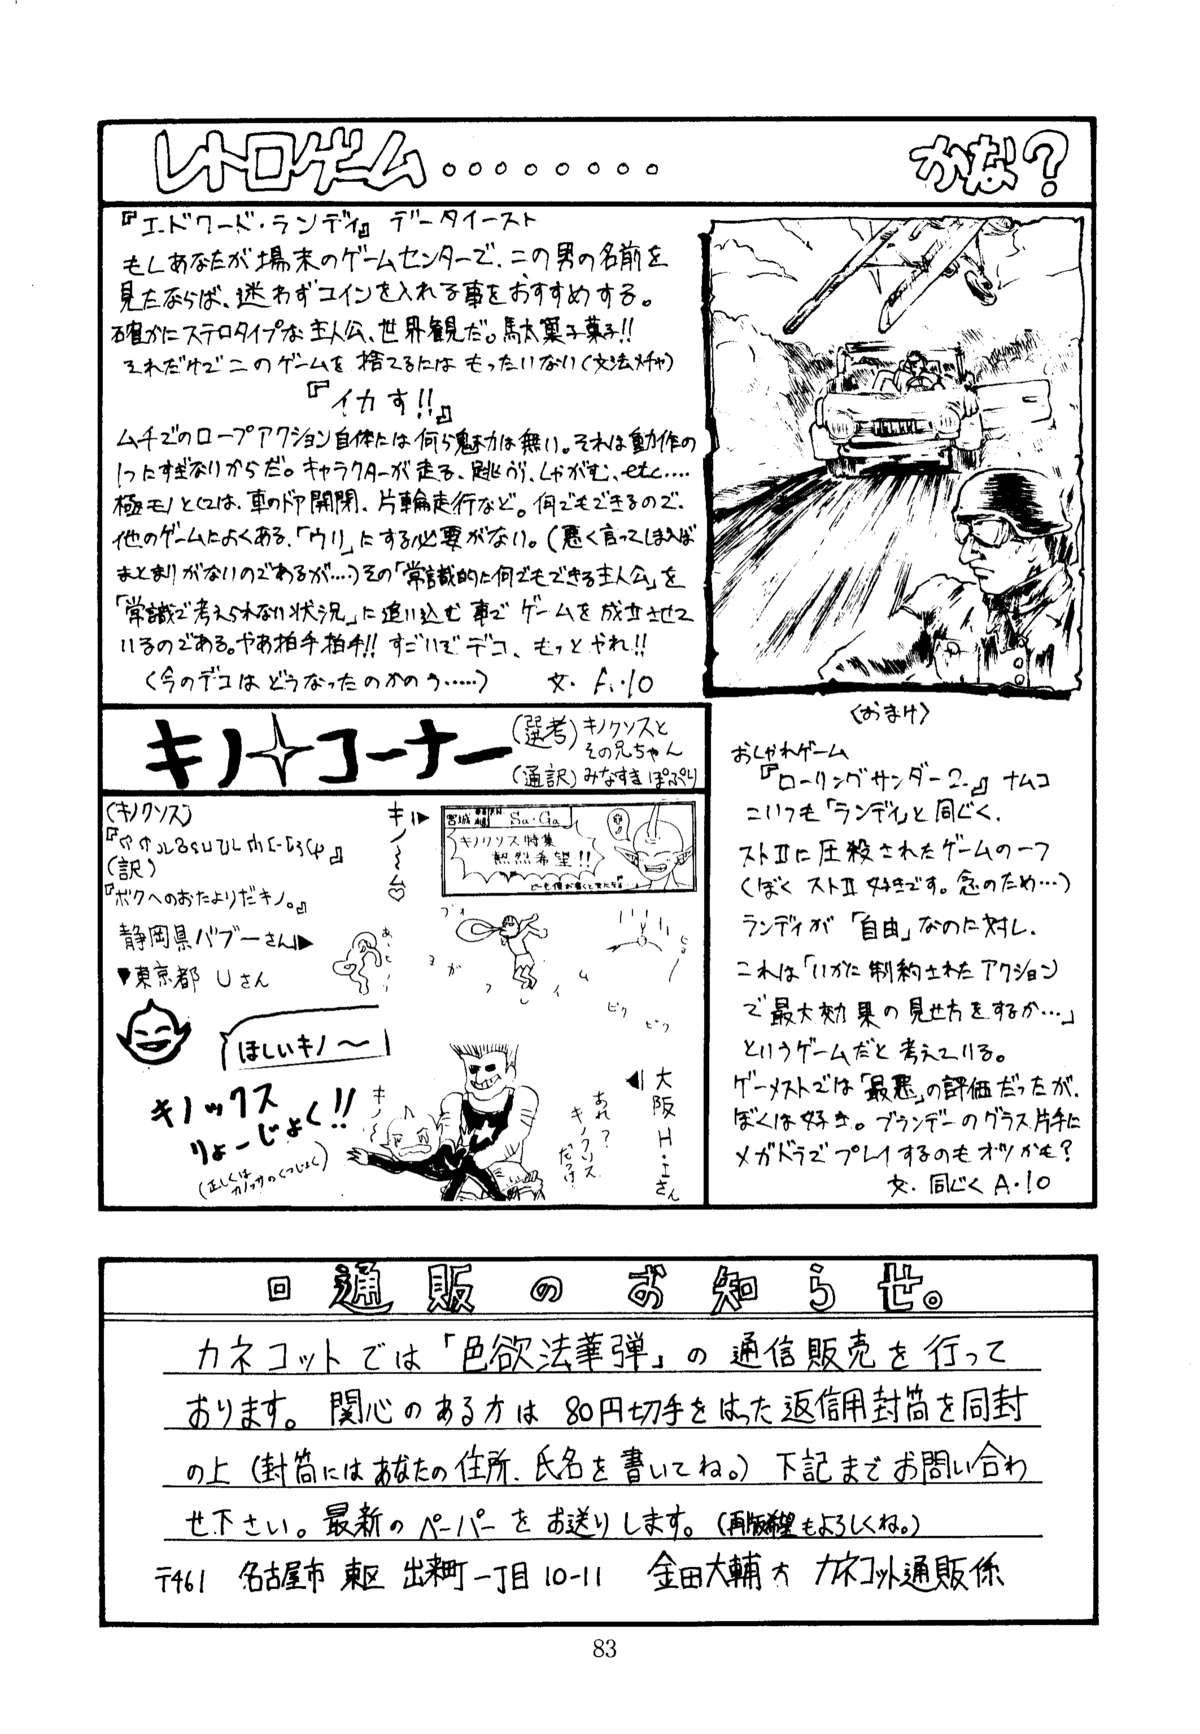 レトロゲーム・・・・・・・・ かな?
『エドワード・ランディ』 データイースト
もしあなたが場末のゲームセンターで、この男の名前を
見たならば、迷わずコインを入れる事をおすすめする。
確かにステロタイプな主人公、世界観だ。馬太菓子菓子!!
それだけでこのゲームを捨てるにはもったいない(文法メチャ)
『イカす!!』
ムチでのロープアクション自体には何ら魅力は無い。それは動作の
1つにすぎないからだ。キャラクターが走る、跳ぶ、しゃがむ、etc....
極モノとしては、車のドア開閉、片輪走行など。何でもできるので、
他のゲームによくある、「ウリ」にする必要がない。(悪く言ってしまえば
まとまりがないのであるが...)その「常識的に何でもできる主人公」を
「常識で考えられない状況」に追い込む事でゲームを成立させて
いるのである。やあ拍手拍手!! すごいでデコ、もっとやれ!!
(今のデコはどうなったのかのう......) 文・A・10
〈おまけ〉
おしゃれゲーム
『ローリングサンダー2』 ナムコ
こいつも「ランディ」と同じく、
ストIIに圧殺されたゲームの一つ
(ぼくストII好きです。念のため...)
ランディが「自由」なのに対し、
これは「いかに制約されたアクション
で最大効果の見せ方をするか...」
というゲームだと考えている。
ゲーメストでは「最悪」の評価だったが、
ぼくは好き。ブランデーのグラス片手に
メガドラでプレイするのもオツかも?
文・同じくA・10
キノ コーナー
(選考) キノクソスと
その兄ちゃん
(通訳) みなすきぽぷり
(キノクソス)
(訳)
『ボクへのおたよりだキノ。』
静岡県バブーさん▶
▼東京都 Uさん
キノ〜ム♡
宮城 Sa・Ga
キノクソス特集
熱烈希望!!
ほしいキノ〜
キノックス
りょーじょく!!
(正しくは
カノッサのくつじょく)
キノ〜
あれ?
キノクソス
だっけ?
◀大阪H・Iさん
回通販のお知らせ。
カネコットでは「色欲法華弾」の通信販売を行って
おります。関心のある方は80円切手をはった返信用封筒を同封
の上(封筒にはあなたの住所、氏名を書いてね。)下記までお問い合わ
せ下さい。最新のペーパーをお送りします。(再版希望もよろしくね。)
〒461 名古屋市東区出来町一丁目10-11 金田大輔方 カネコット通販係
83